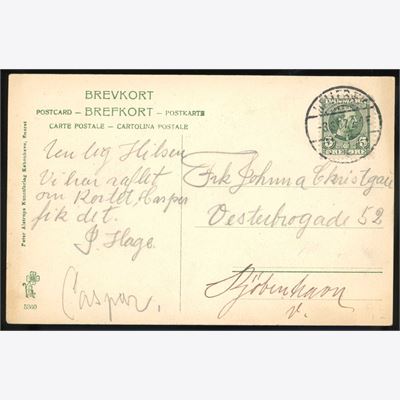 BREVKORT
POSTCARD — BREFKORT — POSTKARTE
CARTE POSTALE — CARTOLINA POSTALE
DANMARK
5 ØRE 5
Hilsen
Vi har raflet
om Kortet. Caspar
fik det.
P. Hage
Caspar.
Frk Johanna Christgau
Vesterbrogade 52
Kjøbenhavn
V.
Peter Alstrups Kunstforlag København, Eneret
5360